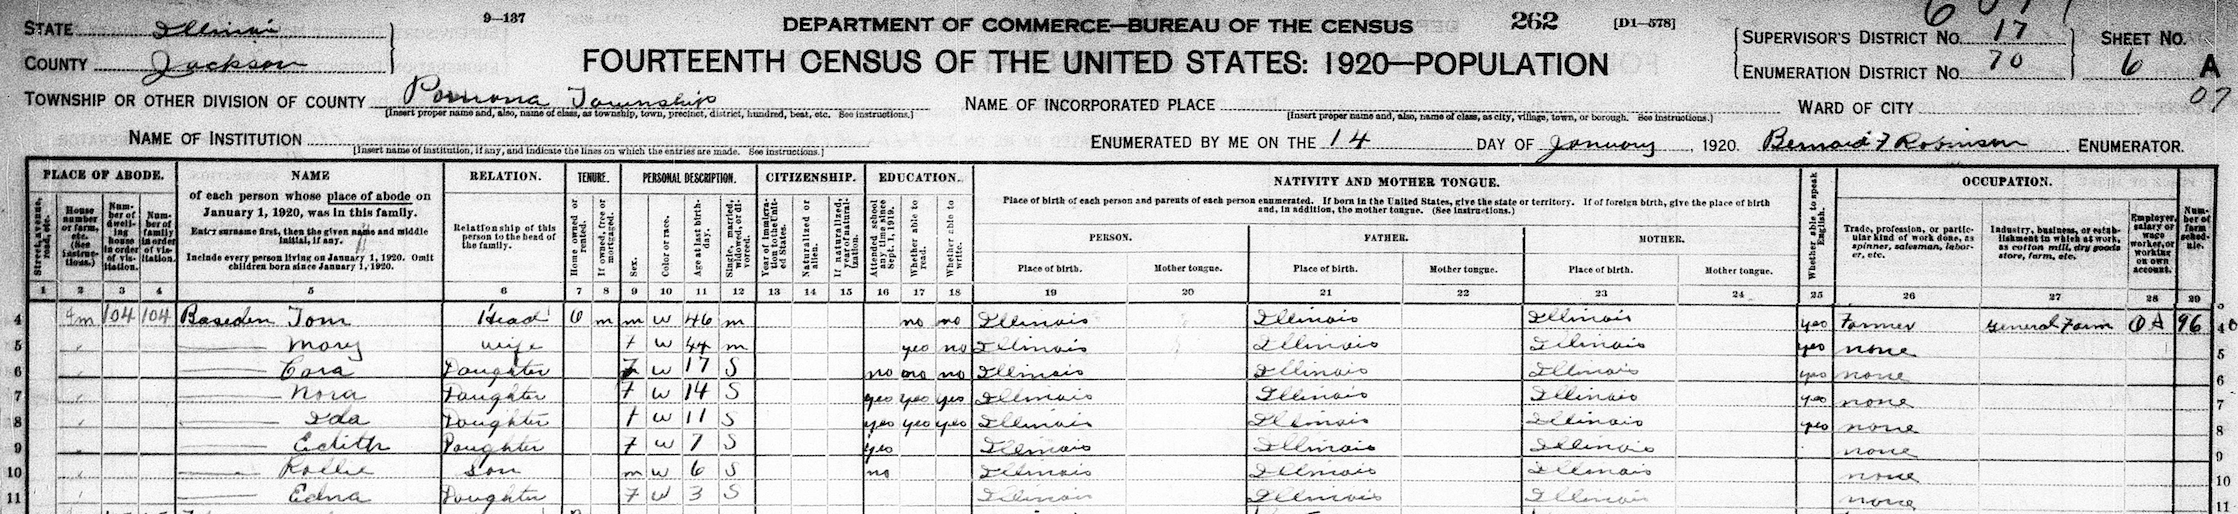 9-137
DEPARTMENT OF COMMERCE—BUREAU OF THE CENSUS
262
[D1-578]
STATE Illinois
COUNTY Jackson
FOURTEENTH CENSUS OF THE UNITED STATES: 1920—POPULATION
SUPERVISOR'S DISTRICT NO. 17
ENUMERATION DISTRICT NO. 70
SHEET NO. 6 A
07
TOWNSHIP OR OTHER DIVISION OF COUNTY Pomona Township
[Insert proper name and, also, name of class, as township, town, precinct, district, hundred, beat, etc. See instructions.]
NAME OF INCORPORATED PLACE
[Insert proper name and, also, name of class, as city, village, town, or borough. See instructions.]
WARD OF CITY
NAME OF INSTITUTION
[Insert name of institution, if any, and indicate the lines on which the entries are made. See instructions.]
ENUMERATED BY ME ON THE 14 DAY OF January, 1920. Bernard F Robinson ENUMERATOR.
PLACE OF ABODE.
Street, avenue, road, etc.
House number or farm, etc. (See instructions.)
Number of dwelling house in order of visitation.
Number of family in order of visitation.
NAME
of each person whose place of abode on
January 1, 1920, was in this family.
Enter surname first, then the given name and middle
initial, if any.
Include every person living on January 1, 1920. Omit
children born since January 1, 1920.
RELATION.
Relationship of this
person to the head of
the family.
TENURE.
Home owned or rented.
If owned, free or mortgaged.
PERSONAL DESCRIPTION.
Sex.
Color or race.
Age at last birthday.
Single, married, widowed, or divorced.
CITIZENSHIP.
Year of immigration to the United States.
Naturalized or alien.
If naturalized, year of naturalization.
EDUCATION.
Attended school any time since Sept. 1, 1919.
Whether able to read.
Whether able to write.
NATIVITY AND MOTHER TONGUE.
Place of birth of each person and parents of each person enumerated. If born in the United States, give the state or territory. If of foreign birth, give the place of birth
and, in addition, the mother tongue. (See instructions.)
PERSON.
Place of birth.
Mother tongue.
FATHER.
Place of birth.
Mother tongue.
MOTHER.
Place of birth.
Mother tongue.
Whether able to speak English.
OCCUPATION.
Trade, profession, or particular kind of work done, as spinner, salesman, laborer, etc.
Industry, business, or establishment in which at work, as cotton mill, dry goods store, farm, etc.
Employer, salary or wage worker, or working on own account.
Number of farm schedule.
1 2 3 4 5 6 7 8 9 10 11 12 13 14 15 16 17 18 19 20 21 22 23 24 25 26 27 28 29
4 fm 104 104 Baseden Tom Head O m m W 46 m no no Illinois Illinois Illinois yes Farmer General Farm OA 96 4
5 — Mary wife F W 44 m yes no Illinois Illinois Illinois yes none 5
6 — Cora Daughter F W 17 S no no no Illinois Illinois Illinois yes none 6
7 — Nora Daughter F W 14 S yes yes yes Illinois Illinois Illinois yes none 7
8 — Ida Daughter F W 11 S yes yes yes Illinois Illinois Illinois yes none 8
9 — Edith Daughter F W 7 S yes Illinois Illinois Illinois none 9
10 — Rollie Son m W 6 S no Illinois Illinois Illinois none 10
11 — Edna Daughter F W 3 S Illinois Illinois Illinois none 11